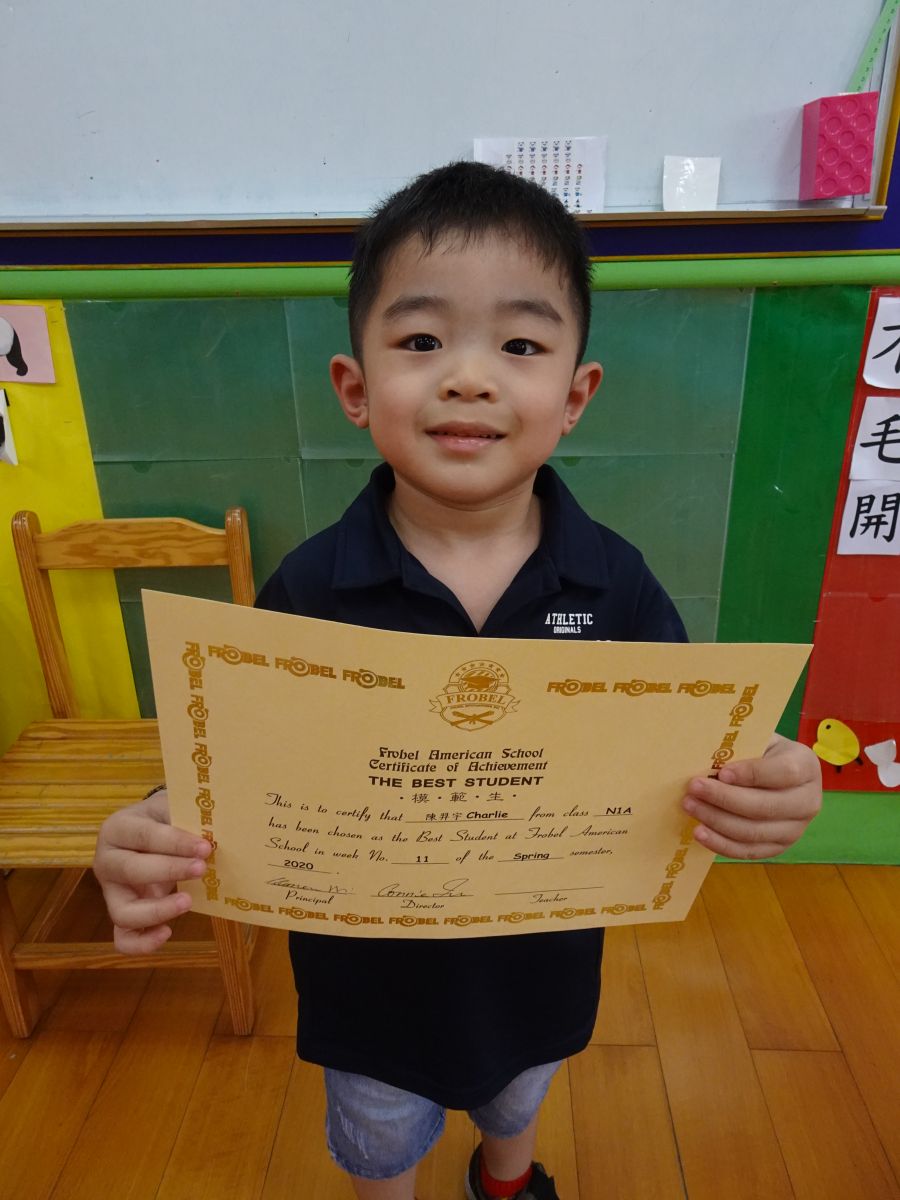 木
毛
開
ATHLETIC
ORIGINALS
FROBEL FROBEL FROBEL FROBEL FROBEL FROBEL
FROBEL
Frobel American School
Certificate of Achievement
THE BEST STUDENT
・模・範・生・
This is to certify that 陳羿宇 Charlie from class N1A
has been chosen as the Best Student at Frobel American
School in week No. 11 of the Spring semester,
2020 .
Principal Director Teacher
FROBEL FROBEL FROBEL FROBEL FROBEL FROBEL FROBEL FROBEL